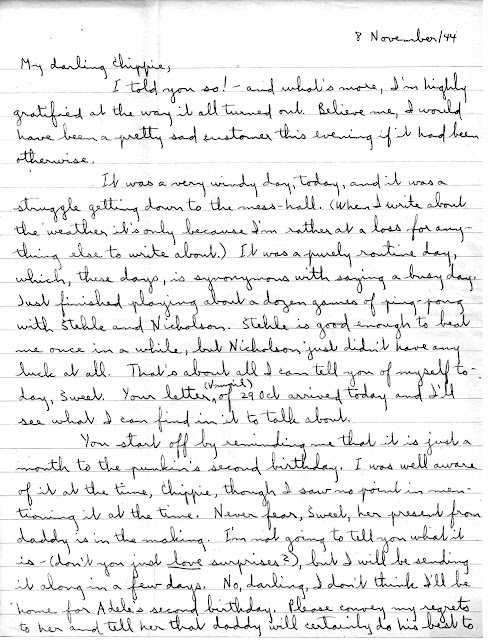 8 November/44
My darling Chippie,
I told you so! - and what's more, I'm highly
gratified at the way it all turned out. Believe me, I would
have been a pretty sad customer this evening if it had been
otherwise.
It was a very windy day, today, and it was a
struggle getting down to the mess-hall. (When I write about
the weather it's only because I'm rather at a loss for any-
thing else to write about.) It was a purely routine day,
which, these days, is synonymous with saying a busy day.
Just finished playing about a dozen games of ping-pong
with Stehle and Nicholson. Stehle is good enough to beat
me once in a while, but Nicholson just didn't have any
luck at all. That's about all I can tell you of myself to-
day, Sweet. Your letter, (Vmail) of 29 Oct arrived today and I'll
see what I can find in it to talk about.
You start off by reminding me that it is just a
month to the punkin's second birthday. I was well aware
of it at the time, Chippie, though I saw no point in men-
tioning it at the time. Never fear, Sweet, her present from
daddy is in the making. I'm not going to tell you what it
is - (don't you just love surprises?), but I will be sending
it along in a few days. No, darling, I don't think I'll be
home for Adele's second birthday. Please convey my regrets
to her and tell her that daddy will certainly do his best to